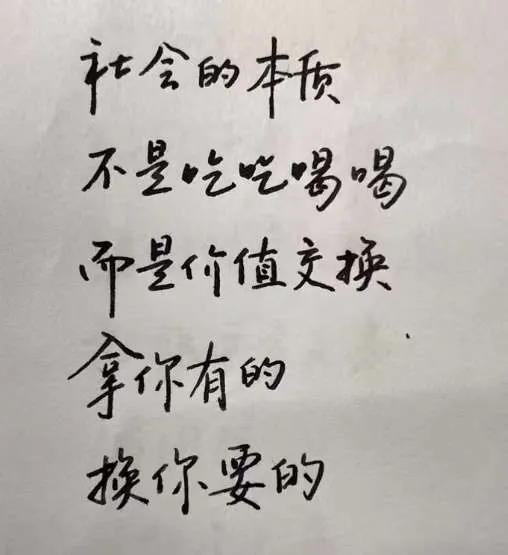 社会的本质
不是吃吃喝喝
而是价值交换
拿你有的
换你要的